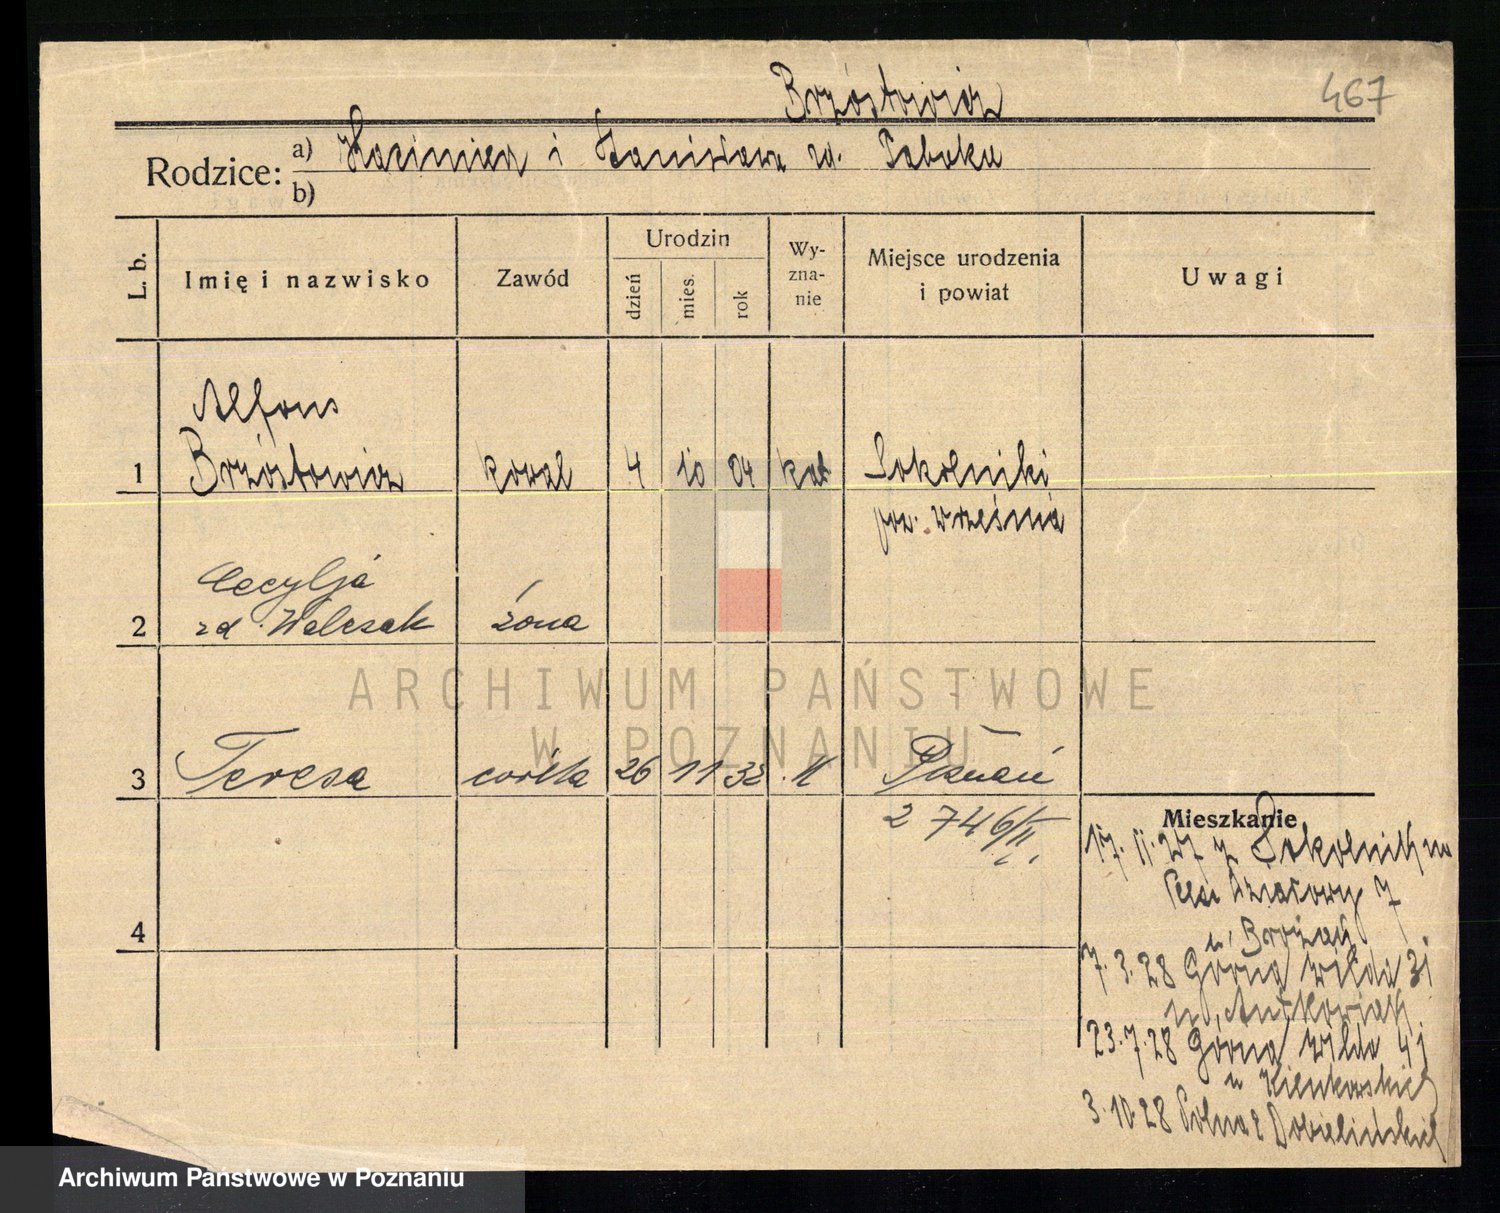 467
Brzóstowicz
Rodzice: a) Kazimierz i Stanisława zd.
b)
L. b.
Imię i nazwisko
Zawód
Urodzin
dzień
mies.
rok
Wy-
zna-
nie
Miejsce urodzenia
i powiat
Uwagi
Alfons
1 Brzóstowicz kowal 4 10 04 kat Sokolniki
pow. września
Cecylja
2 zd. Walczak żona
3 Teresa córka 26 11 32 Poznań
2 746/II
4
Mieszkanie
17. 11. 27 z Sokolnik na
7
u
7. 3. 28 Górna Wilda 31
u
23. 7. 28 Górna Wilda 41
u
3. 10. 28 Polna 2
ARCHIWUM PAŃSTWOWE
W POZNANIU
Archiwum Państwowe w Poznaniu